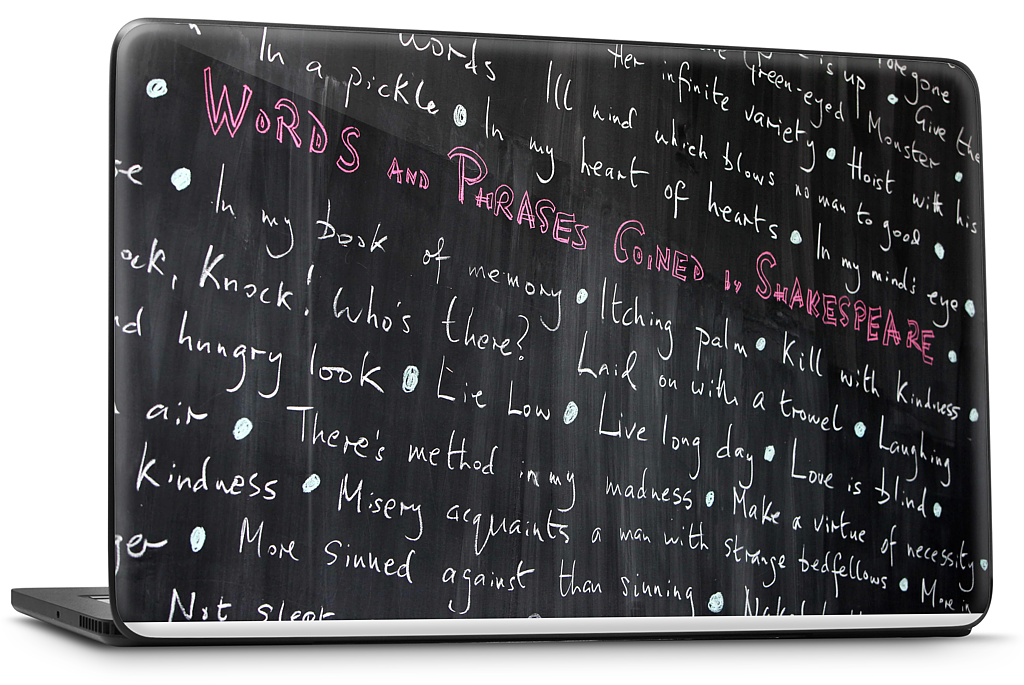 foregone
is up • Give the
the Green-eyed Monster •
Her infinite variety • Hoist with his
words Ill wind which blows no man to good •
In a pickle • In my heart of hearts • In my mind's eye •
WORDS AND PHRASES COINED by SHAKESPEARE •
se • In my book of memory • Itching palm • Kill with kindness •
ock, Knock! Who's there? Laid on with a trowel • Laughing
d hungry look • Lie Low • Live long day • Love is blind •
air • There's method in my madness • Make a virtue of necessity •
kindness • Misery acquaints a man with strange bedfellows • More in
ger • More sinned against than sinning •
Not slept